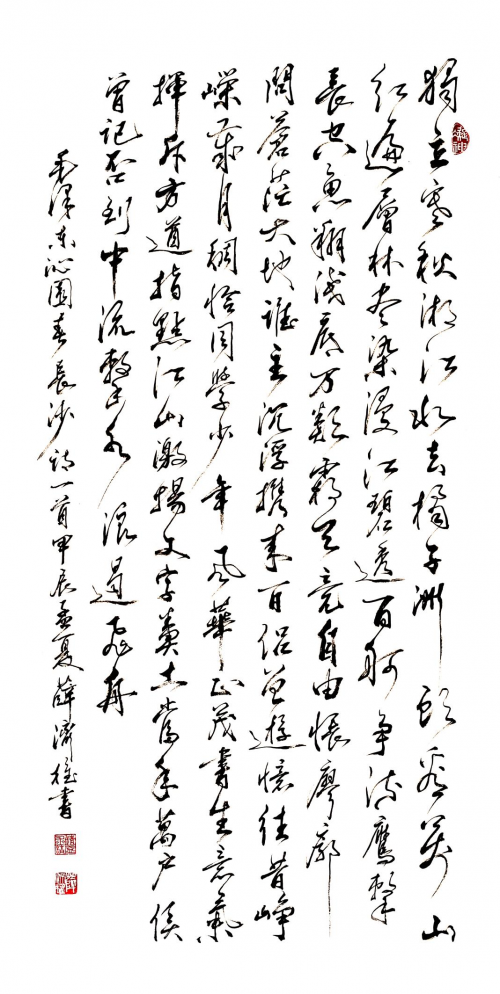 獨立寒秋湘江北去橘子洲頭看萬山
紅遍層林盡染漫江碧透百舸爭流鷹擊
長空魚翔淺底万類霜天競自由悵廖廓
問蒼茫大地誰主沉浮携來百侶曾遊憶往昔崢
嶸歲月稠恰同學少年風華正茂書生意氣
揮斥方遒指點江山激揚文字糞土當年萬户侯
曾記否到中流擊水浪遏飛舟
毛澤東沁園春長沙詩一首甲辰孟夏薛濟書